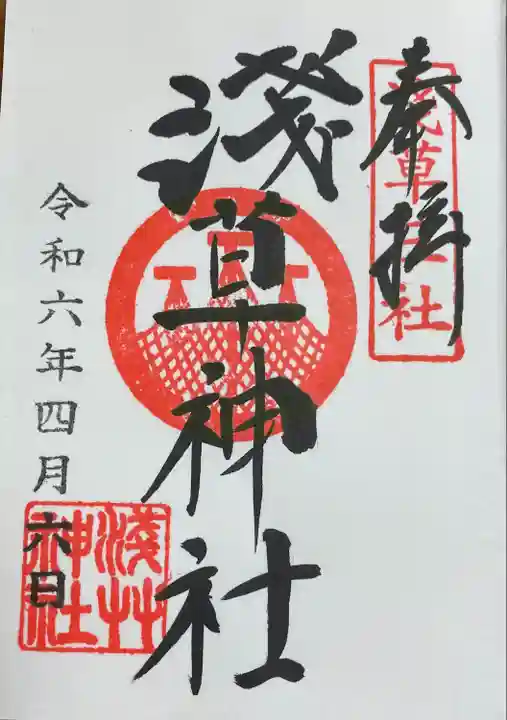 奉拝
浅草神社
淺草神社
令和六年四月六日
淺草
神社